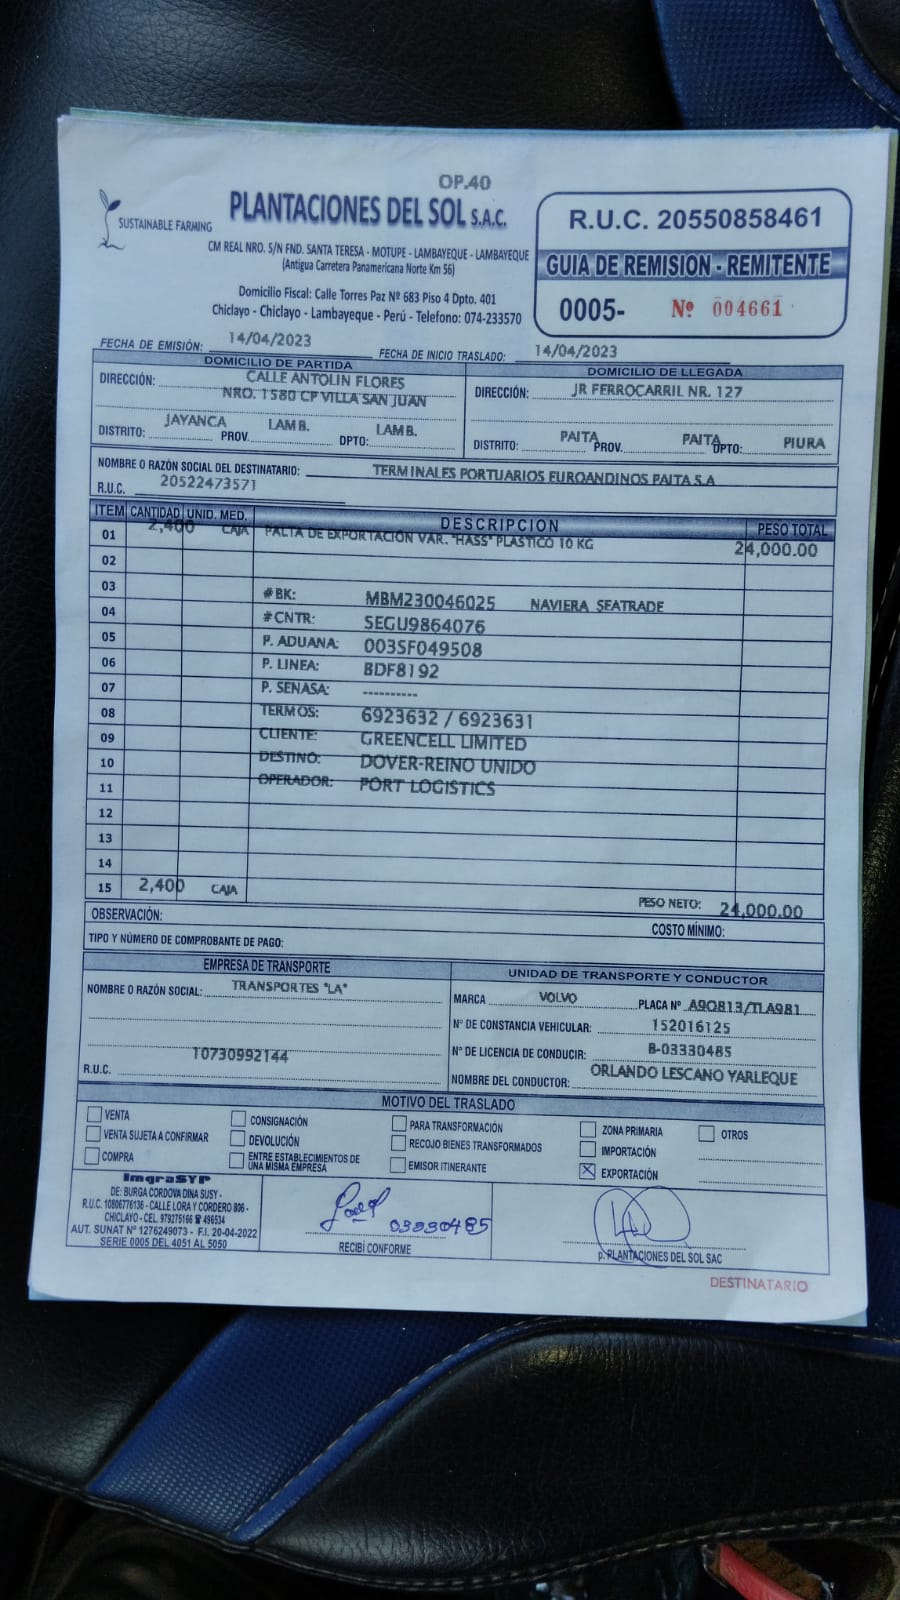 OP.40
SUSTAINABLE FARMING
PLANTACIONES DEL SOL S.A.C.
CM REAL NRO. S/N FND. SANTA TERESA - MOTUPE - LAMBAYEQUE - LAMBAYEQUE
(Antigua Carretera Panamericana Norte Km 56)
Domicilio Fiscal: Calle Torres Paz Nº 683 Piso 4 Dpto. 401
Chiclayo - Chiclayo - Lambayeque - Perú - Telefono: 074-233570
R.U.C. 20550858461
GUIA DE REMISION - REMITENTE
0005- Nº 004661
FECHA DE EMISIÓN: 14/04/2023 FECHA DE INICIO TRASLADO: 14/04/2023
DOMICILIO DE PARTIDA
DIRECCIÓN: CALLE ANTOLIN FLORES
NRO. 1580 CP VILLA SAN JUAN
DISTRITO: JAYANCA PROV. LAMB. DPTO: LAMB.
DOMICILIO DE LLEGADA
DIRECCIÓN: JR FERROCARRIL NR. 127
DISTRITO: PAITA PROV. PAITA DPTO: PIURA
NOMBRE O RAZÓN SOCIAL DEL DESTINATARIO: TERMINALES PORTUARIOS EUROANDINOS PAITA S.A
R.U.C. 20522473571
ITEM CANTIDAD UNID. MED. DESCRIPCION PESO TOTAL
01 2,400 CAJA PALTA DE EXPORTACIÓN VAR. "HASS" PLASTICO 10 KG 24,000.00
02
03 #BK: MBM230046025 NAVIERA SEATRADE
04 #CNTR: SEGU9864076
05 P. ADUANA: 003SF049508
06 P. LINEA: BDF8192
07 P. SENASA: ----------
08 TERMOS: 6923632 / 6923631
09 CLIENTE: GREENCELL LIMITED
10 DESTINO: DOVER-REINO UNIDO
11 OPERADOR: PORT LOGISTICS
12
13
14
15 2,400 CAJA PESO NETO: 24,000.00
OBSERVACIÓN: COSTO MÍNIMO:
TIPO Y NÚMERO DE COMPROBANTE DE PAGO:
EMPRESA DE TRANSPORTE
NOMBRE O RAZÓN SOCIAL: TRANSPORTES "LA"
R.U.C. 10730992144
UNIDAD DE TRANSPORTE Y CONDUCTOR
MARCA VOLVO PLACA Nº A9O813/TLA981
Nº DE CONSTANCIA VEHICULAR: 152016125
Nº DE LICENCIA DE CONDUCIR: B-03330485
NOMBRE DEL CONDUCTOR: ORLANDO LESCANO YARLEQUE
MOTIVO DEL TRASLADO
VENTA CONSIGNACIÓN PARA TRANSFORMACIÓN ZONA PRIMARIA OTROS
VENTA SUJETA A CONFIRMAR DEVOLUCIÓN RECOJO BIENES TRANSFORMADOS IMPORTACIÓN
COMPRA ENTRE ESTABLECIMIENTOS DE EMISOR ITINERANTE X EXPORTACIÓN
UNA MISMA EMPRESA
ImgraSYP
DE: BURGA CORDOVA DINA SUSY -
R.U.C. 10806776136 - CALLE LORA Y CORDERO 806 -
CHICLAYO - CEL. 979275166 ☎ 496534
AUT. SUNAT Nº 1276249073 - F.I. 20-04-2022
SERIE 0005 DEL 4051 AL 5050
03330485
RECIBÍ CONFORME
p. PLANTACIONES DEL SOL SAC
DESTINATARIO